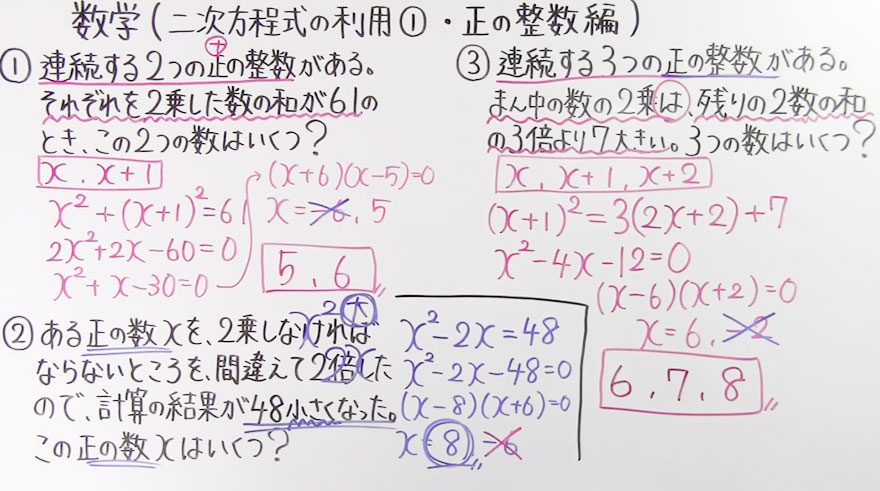 数学(二次方程式の利用①・正の整数編)
①連続する2つの正の整数がある。
+
それぞれを2乗した数の和が61の
とき、この2つの数はいくつ?
x, x+1
x²+(x+1)²=61
2x²+2x-60=0
x²+x-30=0
(x+6)(x-5)=0
x=-6, 5
5, 6
②ある正の数xを、2乗しなければ
x² 大
ならないところを、間違えて2倍した
2x
ので、計算の結果が48小さくなった。
この正の数xはいくつ?
x²-2x=48
x²-2x-48=0
(x-8)(x+6)=0
x=8, -6
③連続する3つの正の整数がある。
まん中の数の2乗は、残りの2数の和
の3倍より7大きい。3つの数はいくつ?
x, x+1, x+2
(x+1)²=3(2x+2)+7
x²-4x-12=0
(x-6)(x+2)=0
x=6, -2
6, 7, 8